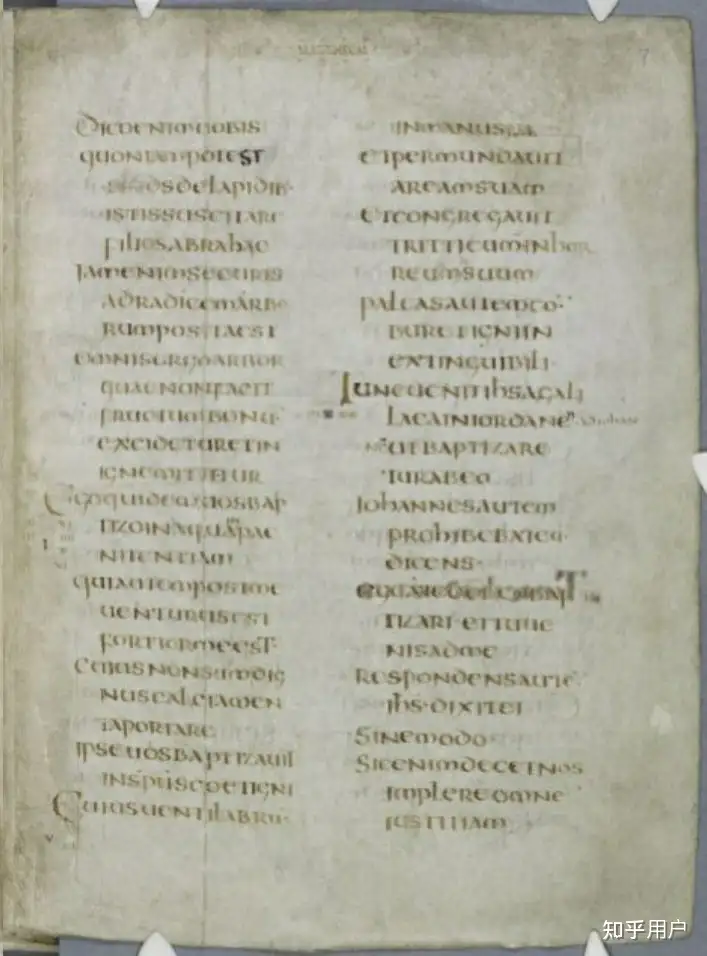 7
DICOENIMUOBIS
QUONIAMPOTEST
DSDELAPIDIB·
ISTISSUSCITARE
FILIOSABRAHAE
IAMENIMSECURIS
ADRADICEMARBO
RUMPOSITAEST
OMNISERGOARBOR
QUAENONFACIT
FRUCTUMBONU·
EXCIDETURETIN
IGNEMITTETUR
EGOQUIDEMUOSBAP
TIZOINAQUAPAE
NITENTIAM
QUIAUTEMPOSTME
UENTURUSEST
FORTIORMEEST·
CUIUSNONSUMDIG
NUSCALCIAMEN
TAPORTARE
IPSEUOSBAPTIZAUIT
INSPUSCOETIGNI
CUIUSUENTILABRU·
INMANUSUA
ETPERMUNDAUIT
AREAMSUAM
ETCONGREGAUIT
TRITICUMINHOR
REUMSUUM
PALEASAUTEMCO·
BURETIGNIIN
EXTINGUIBILI·
TUNCUENITIHSAGALI
LAEAINIORDANE
UTBAPTIZARE
TURABEO
IOHANNESAUTEM
PROHIBEBATEU·
DICENS·
TIZARI·ETTUUE
NISADME
RESPONDENSAUTE·
IHS·DIXITEI
SINEMODO
SICENIMDECETNOS
IMPLEREOMNE
IUSTITIAM
知乎用户